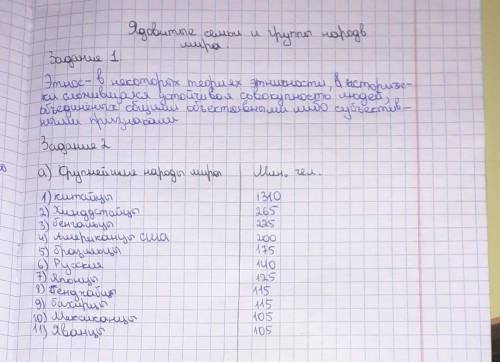 Ядовитые семьи и группы народв
мира.
Задание 1
Этнос - в некоторых теориях этничности, в историче-
ки сложившаяся устойчивая совокупность людей,
объединёных общими объективными либо субъектив-
ными признаками
Задание 2
а) Крупнейшие народы мира Мин. чел.
1) китайцы 1310
2) Хиндустайцы 265
3) бенгайцы 225
4) Американцы сша 200
5) бразильцы 175
6) Русские 140
7) Японцы 125
8) Пенджабцы 115
9) бахарцы 115
10) Мексиканцы 105
11) Яванцы 105